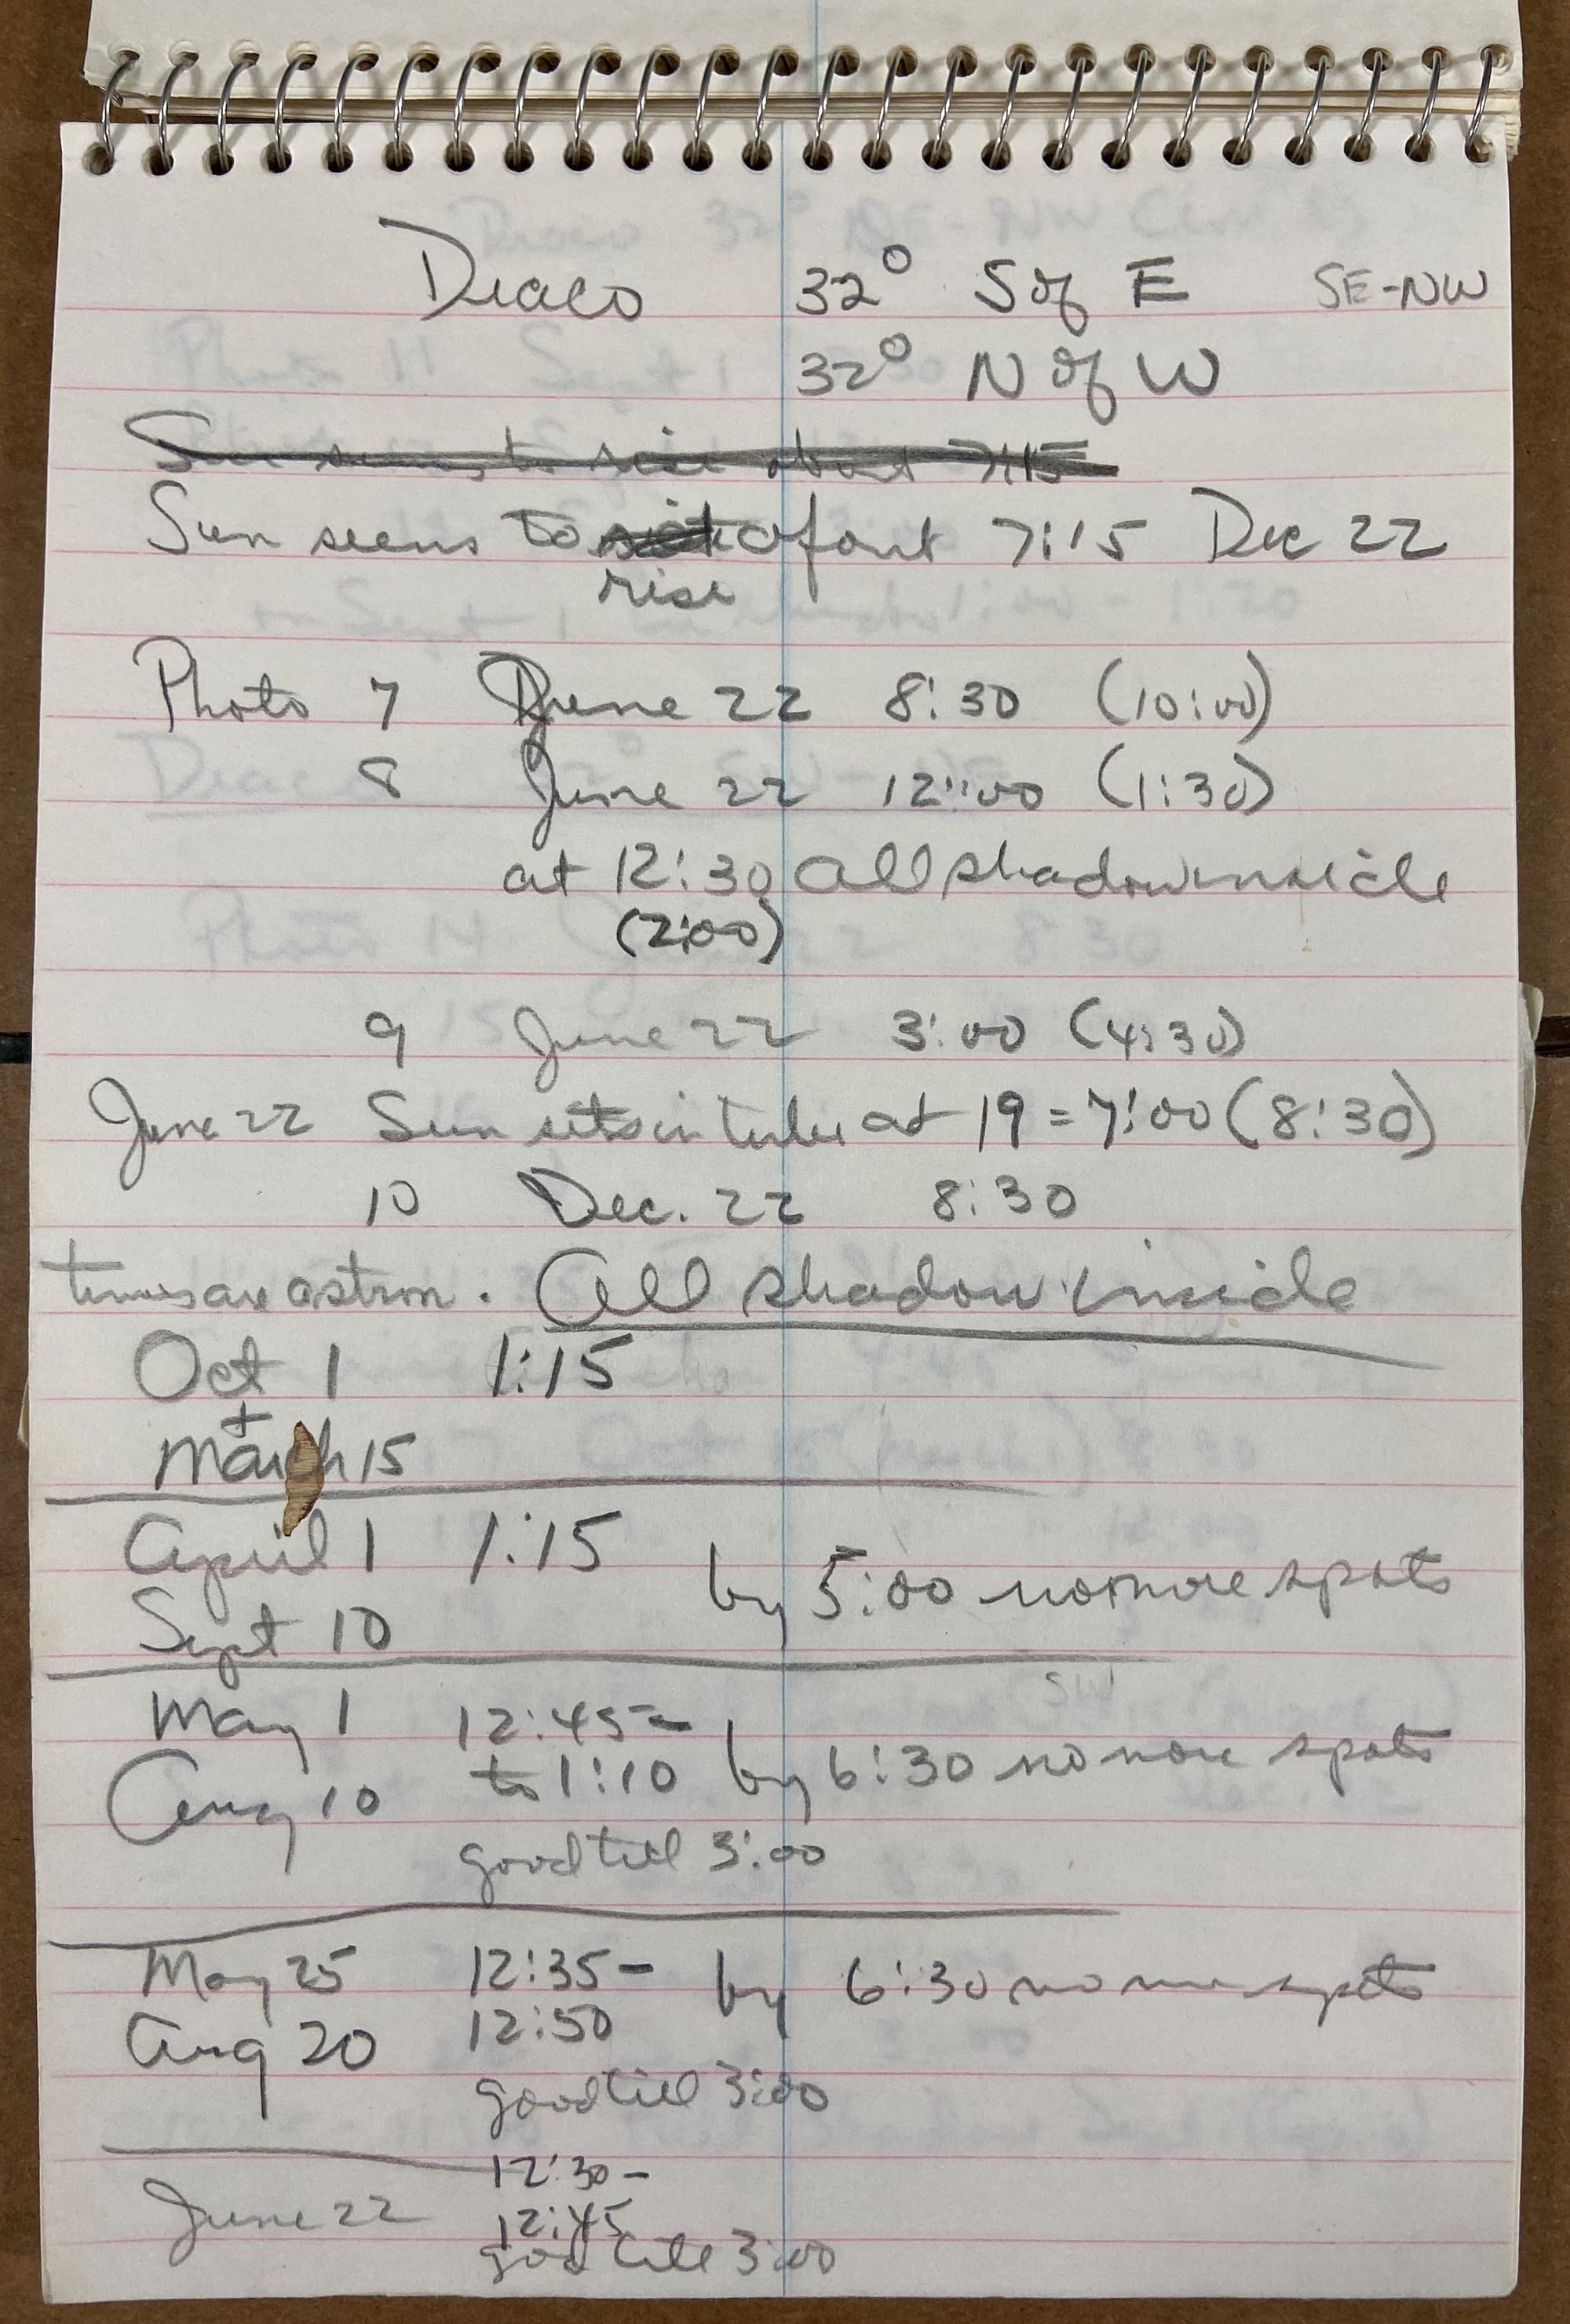 Draco 32° S of E SE-NW
32° N of W
Sun seems to rise about 7:15
Sun seems to about 7:15 Dec 22
rise
Photo 7 June 22 8:30 (10:00)
8 June 22 12:00 (1:30)
at 12:30 all shadow inside
(2:00)
9 June 22 3:00 (4:30)
June 22 Sun sets in tube at 19 = 7:00 (8:30)
10 Dec. 22 8:30
times are astron. All shadow inside
Oct 1 1:15
+
March 15
April 1 1:15
by 5:00 no more spots
Sept 10
May 1 12:45-
to 1:10 by 6:30 no more spots
Aug 10
good till 3:00
May 25 12:35- by 6:30 no more spots
Aug 20 12:50
good till 3:00
12:30-
June 22 12:45
good till 3:00